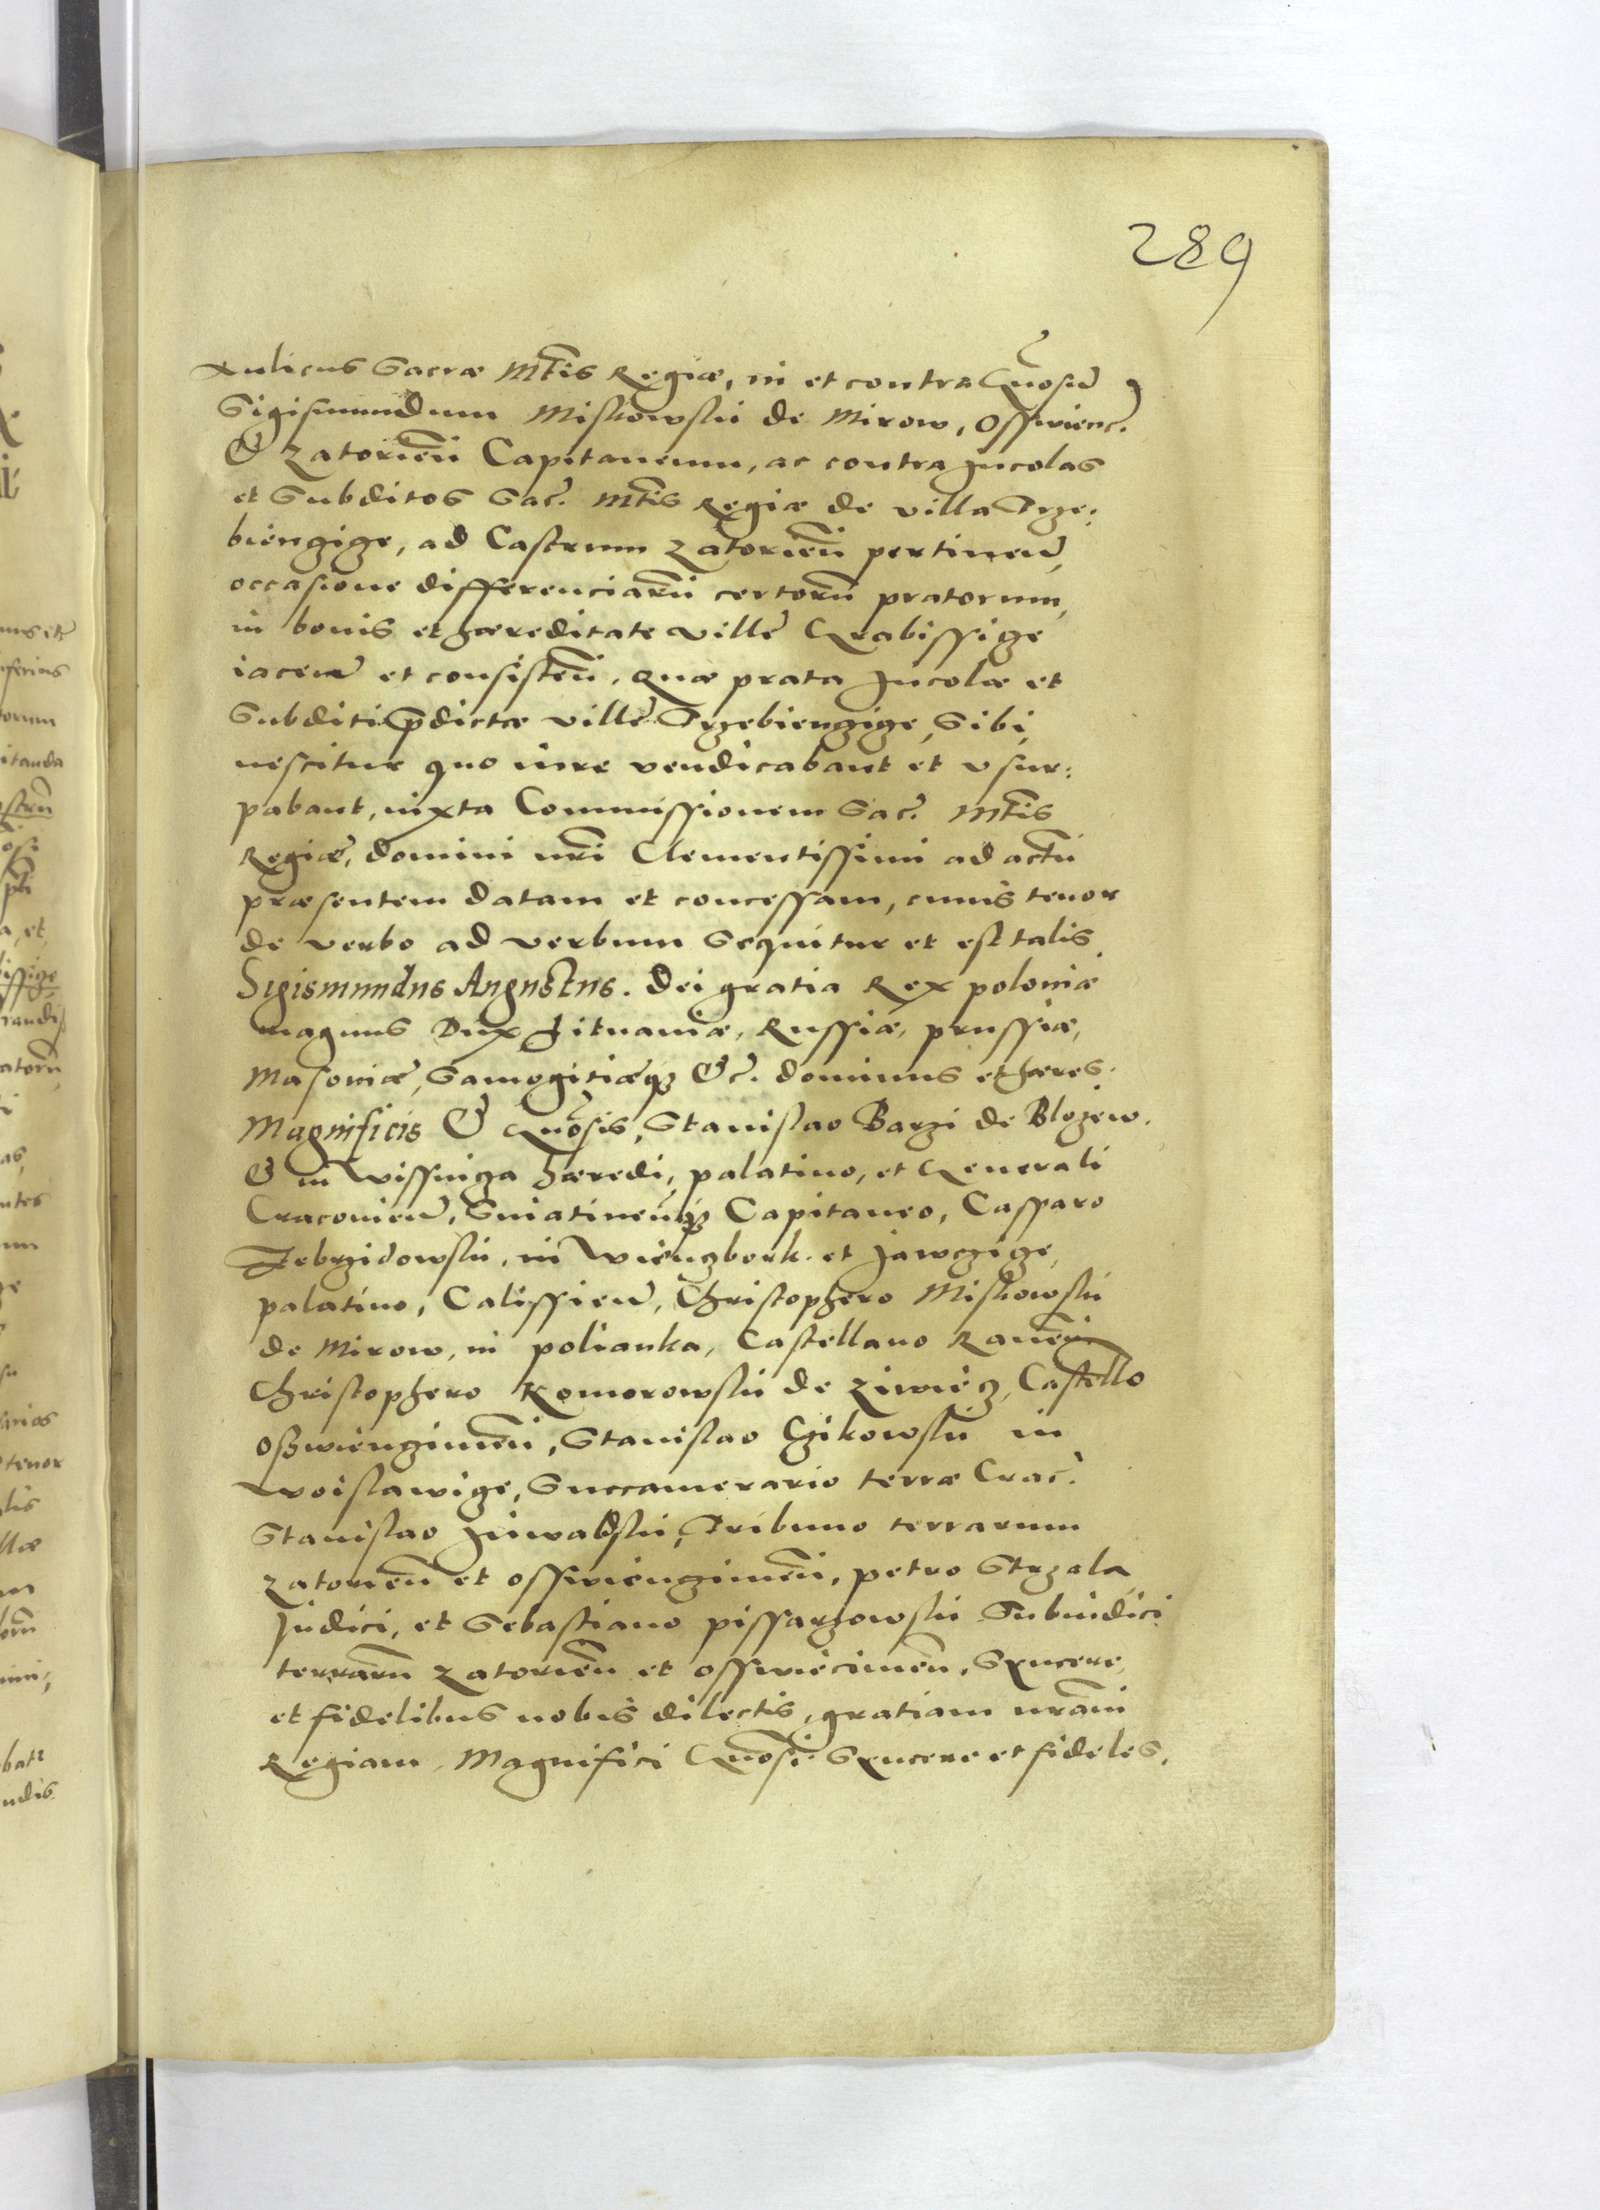 289
Aulicus Sacræ Mtis Regiæ, in et contra Gnosū
Sigismundum Miskowskii de Mirow, Osswienc.
& Zatorieñ Capitaneum, ac contra Incolas
et Subditos Sac. Mtis Regiæ de villa Trze:
biengige, ad Castrum Zatorieñ pertineñ,
occasione differenciarū certorū pratorum,
in bonis et hæreditate villę Grabissige
iaceñ et consisteñ, quæ prata Incolæ et
Subditi p̄dictæ villę Trzebiengige, Sibi,
nescitur quo iure vendicabant et vsur:
pabant, iuxta Commissionem Sac. Mtis
Regiæ, domini nr̄i Clementissimi ad actū
præsentem datam et concessam, cuius tenor
de verbo ad verbum sequitur et est talis.
Sigismundus Augustus. Dei gratia Rex poloniæ
magnus Dux Lituaniæ, Russiæ, prussiæ,
Masoviæ, Samogitiæq; &c. dominus et hæres.
Magnificis & Gnosis, Stanislao Barzi de Blozew.
& in Wissniza hæredi, palatino, et Generali
Cracovieñ, Sniatineñq; Capitaneo, Casparo
Zebrzidowskii, in Wiengbork. et Jawczige,
palatino, Calissieñ, Christophero Miskowskii
de Mirow, in polianka, Castellano Raveñ
Christophero Komorowskii de Ziwięcz, Castello
Oswiengimeñ, Stanislao Czikowskii in
Woislawige, Succamerario terræ Crac.
Stanislao Tribuno terrarum
Zatorieñ et Osswiengimeñ, petro Strzala
Judici, et Sebastiano pissarzowskii Subiudici
terrarū Zatorieñ et Osswiecimeñ, Syncere
et fidelibus nobis dilectis, gratiam nr̄am
Regiam. Magnifici Gnosi Syncere et fideles.